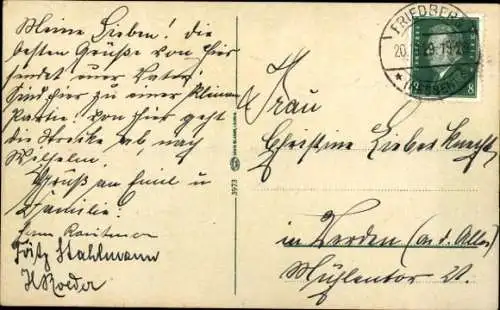 Meine Lieben! die
besten Grüße von hier
sendet euer Vater
Sind hier zu einer kleinen
Partie. von hier geht
die Strecke ab, nach
Wilhelm.
Gruß an Emil u
Familie.
Fritz Stahlmann
H Roeder
3973
FRIEDBERG
20. 29. 19-20
* (HESSEN) *
8
Frau
Christine Lieberknecht,
in Verden (a. d. Aller)
Mühlentor